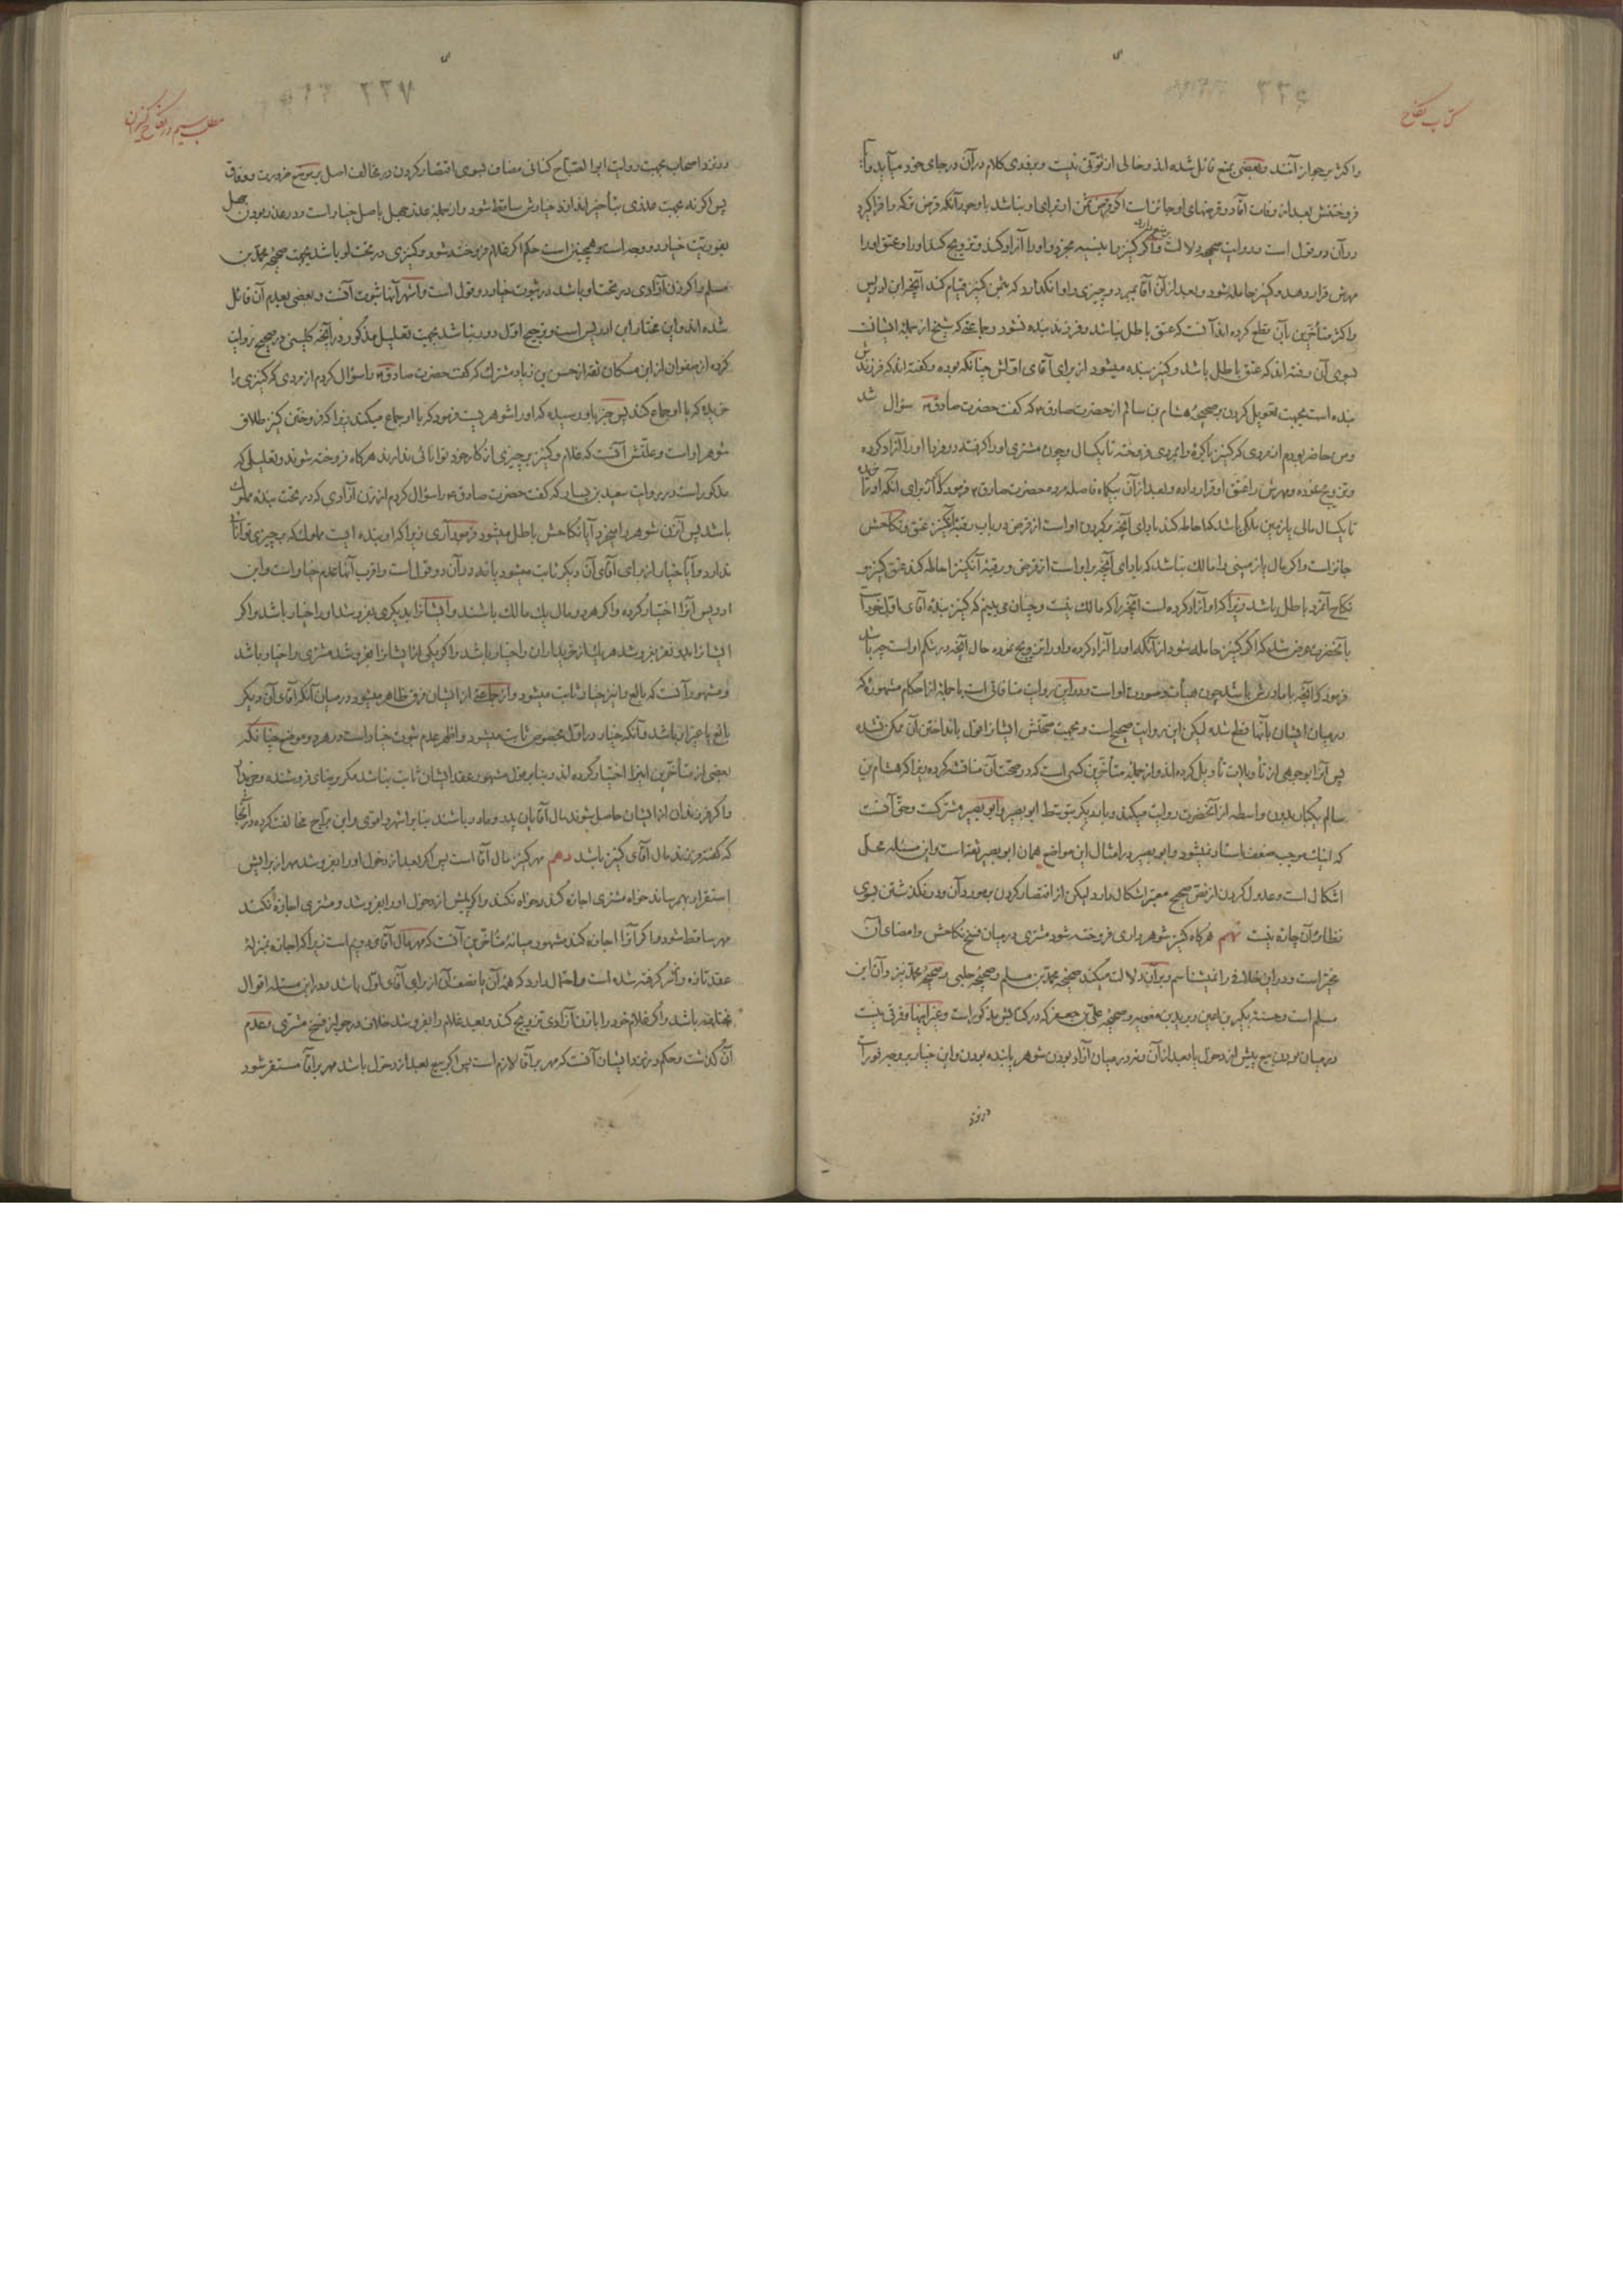 کتاب نکاح
۲۲۶
واکثر بر جواز آنند وبعضی بمنع قائل شده اند وخالی از قوتی نیست وبزودی کلام در آن در جای خود میآید واما
فروختنش بعد از وفات آقا در قرضهای او جائز است اگر قرض ثمن او برای او نباشد با وجود آنکه قرض ترکه را فرا گیرد
ودر آن دو قول است ودو روایت صحیحه دلالت دارد واگر کنیز را بنسیه بخرد واو را آزاد کند وتزویج کند او را وعتق او را
مهرش قرار دهد وکنیز حامله شود وبعد از آن آقا بمیرد وچیزی را وا نگذارد که بثمن کنیز قیام کند آنچه ابن ادریس
واکثر متأخرین بآن قطع کرده اند آنست که عتق باطل نباشد وفرزند بنده نشود وجماعتی که شیخ از جمله ایشانست
بسوی آن رفته اند که عتق باطل باشد وکنیز بنده میشود از برای آقای اولش چنانکه بوده وگفته اند که فرزندش
بنده است بجهت تعویل کردن بر صحیحه هشام بن سالم از حضرت صادق ع که گفت حضرت صادق ع سؤال شد
ومن حاضر بودم از مردی که کنیز باکره را بمردی فروخته تا یکسال وچون مشتری او را گرفته در روز فردا او را آزاد کرده
وتزویج نموده ومهرش را عتق او قرار داده وبعد از آن بیکماه فاصله مرده حضرت صادق ع فرمود که اگر برای آنکه او را خریده
تا یکسال مالی یا زمین ملکی باشد که احاطه کند بادای آنچه بگردن او است از قرض در باب رقبه آن کنیز عتق ونکاحش
جائز است واگر مال یا زمینی را مالک نباشد که بادای آنچه بر او است از قرض در رقبه آن کنیز احاطه کند عتق کنیز و
نکاح آنمرد باطل باشد زیرا که او آزاد کرده است آنچه را که مالک نیست وچنان می بینم که کنیز بنده آقای اول خود است
بآنحضرت عرض شد که اگر کنیز حامله شود از آنکه او را آزاد کرده واو را تزویج نموده حال آنچه در شکم او است چه باشد
فرمود که آنچه با مادرش باشد چون هیأت وصورت او است ودر این روایت منافاتی است با جمله از احکام مشهوره که
در میان ایشان بآنها قطع شده لیکن این روایت صحیح است وبجهت صحتش ایشانرا قول بانداختن آن ممکن نشده
پس آنرا بوجوهی از تأویلات تأویل کرده اند واز جمله متأخرین کسی است که در صحت آن مناقشه کرده زیرا که هشام بن
سالم یکبار بدون واسطه از آنحضرت روایت میکند وبار دیگر بتوسط ابو بصیر وابو بصیر مشترکست وحق آنست
که اینک موجب ضعف اسناد نمیشود وابو بصیر در امثال این مواضع همان ابو بصیر ثقه است واین مسئله محل
اشکال است وعدول کردن از نص صحیح معتبر اشکال دارد لیکن از اقتصار کردن بر مورد آن ودر نگذشتن بسوی
نظائر آن چاره نیست نهم هرگاه کنیز شوهر داری فروخته شود مشتری در میان فسخ نکاحش وامضای آن
مخیر است ودر این خلافی را نمیشناسم وبر آن دلالت میکند صحیحه محمد بن مسلم وصحیحه حلبی وصحیحه محمد نیز وآن ابن
مسلم است وحسنه بکیر بن اعین وبرید بن معویه وصحیحه علی بن جعفر که در کتابش مذکور است وغیر اینها وفرقی نیست
در میان بودن بیع پیش از دخول یا بعد از آن ونه در میان آزاد بودن شوهر یا بنده بودن واین خیار بر وجه فور است
ودر نزد
مطلب سیم در نکاح کنیزان
۲۲۷
ودر نزد اصحاب بجهت روایت ابو الصباح کنانی مضاف بسوی اقتصار کردن در مخالف اصل بر موضع ضرورت ووفاق
پس اگر نه بجهت عذری بتأخیر اندازد خیارش ساقط شود واز جمله عذر جهل باصل خیار است ودر عذر بودن جهل
بفوریت خیار دو وجه است وهمچنین است حکم اگر غلام فروخته شود وکنیزی در تحت او باشد بجهت صحیحه محمد بن
مسلم واگر زن آزادی در تحت او باشد در ثبوت خیار دو قول است واشهر آنها ثبوت آنست وبعضی بعدم آن قائل
شده اند واین مختار ابن ادریس است وترجیح اول دور نباشد بجهت تعلیل مذکور در آنچه کلینی در صحیح روایت
کرده از صفوان از ابن مسکان ثقه از حسن بن زیاد مشترک که گفت حضرت صادق ع را سؤال کردم از مردی که کنیزی را
خریده که با او جماع کند پس خبر باو رسیده که او را شوهر یست فرمود که با او جماع میکند زیرا که فروختن کنیز طلاق
شوهر او است وعلتش آنست که غلام وکنیز بر چیزی از کار خود توانائی ندارند هرگاه فروخته شوند وتعلیلی که
مذکور است در روایت سعید بن یسار که گفت حضرت صادق ع را سؤال کردم از زن آزادی که در تحت بنده مملوک
باشد پس آنزن شوهر را بخرد آیا نکاحش باطل میشود فرمود آری زیرا که او بنده ایست مملوک که بر چیزی توانائی
ندارد وآیا خیار از برای آقای آن دیگر ثابت میشود یا نه در آن دو قول است واقرب آنها عدم خیار است وابن
ادریس آنرا اختیار کرده واگر هر دو مال یک مالک باشند وایشانرا بدیگری بفروشد او را خیار باشد واگر
ایشانرا بدو نفر بفروشد هر یک از خریداران را خیار باشد واگر یکی از ایشانرا بفروشد مشتری را خیار باشد
ومشهور آنست که بایع را نیز خیار ثابت میشود واز جماعتی از ایشان فرق ظاهر میشود در میان آنکه آقای آن دیگر
بایع یا غیر آن باشد وآنکه خیار در اول بخصوص ثابت میشود واظهر عدم ثبوت خیار است در هر دو موضع چنانکه
بعضی از متأخرین اینرا اختیار کرده اند وبنا بر قول مشهور عقد ایشان ثابت نباشد مگر برضای فروشنده وخریدار
واگر فرزندان از ایشان حاصل شوند مال آقایان پدر ومادر باشند بنا بر اشهر واقوی وابن براج مخالفت کرده در آنجا
که گفته فرزند مال آقای کنیز باشد دهم مهر کنیز مال آقا است پس اگر بعد از دخول او را بفروشد مهر از برایش
استقرار بهم رساند خواه مشتری اجازه کند وخواه نکند واگر پیش از دخول او را بفروشد ومشتری اجازه نکند
مهر ساقط شود واگر آنرا اجازه کند مشهور میانه متأخرین آنست که مهر مال آقای دویم است زیرا که اجازه بمنزله
عقد تازه فرا گرفته شده است واحتمال دارد که همه آن یا نصف آن از برای آقای اول باشد ودر این مسئله اقوال
مختلفه باشد واگر غلام خود را با زن آزادی تزویج کند وبعد غلام را بفروشد خلاف در جواز فسخ مشتری وعدم
آن گذشت وحکم در نزد ایشان آنست که مهر بر آقا لازم است پس اگر بیع بعد از دخول باشد مهر بر آقا مستقر شود